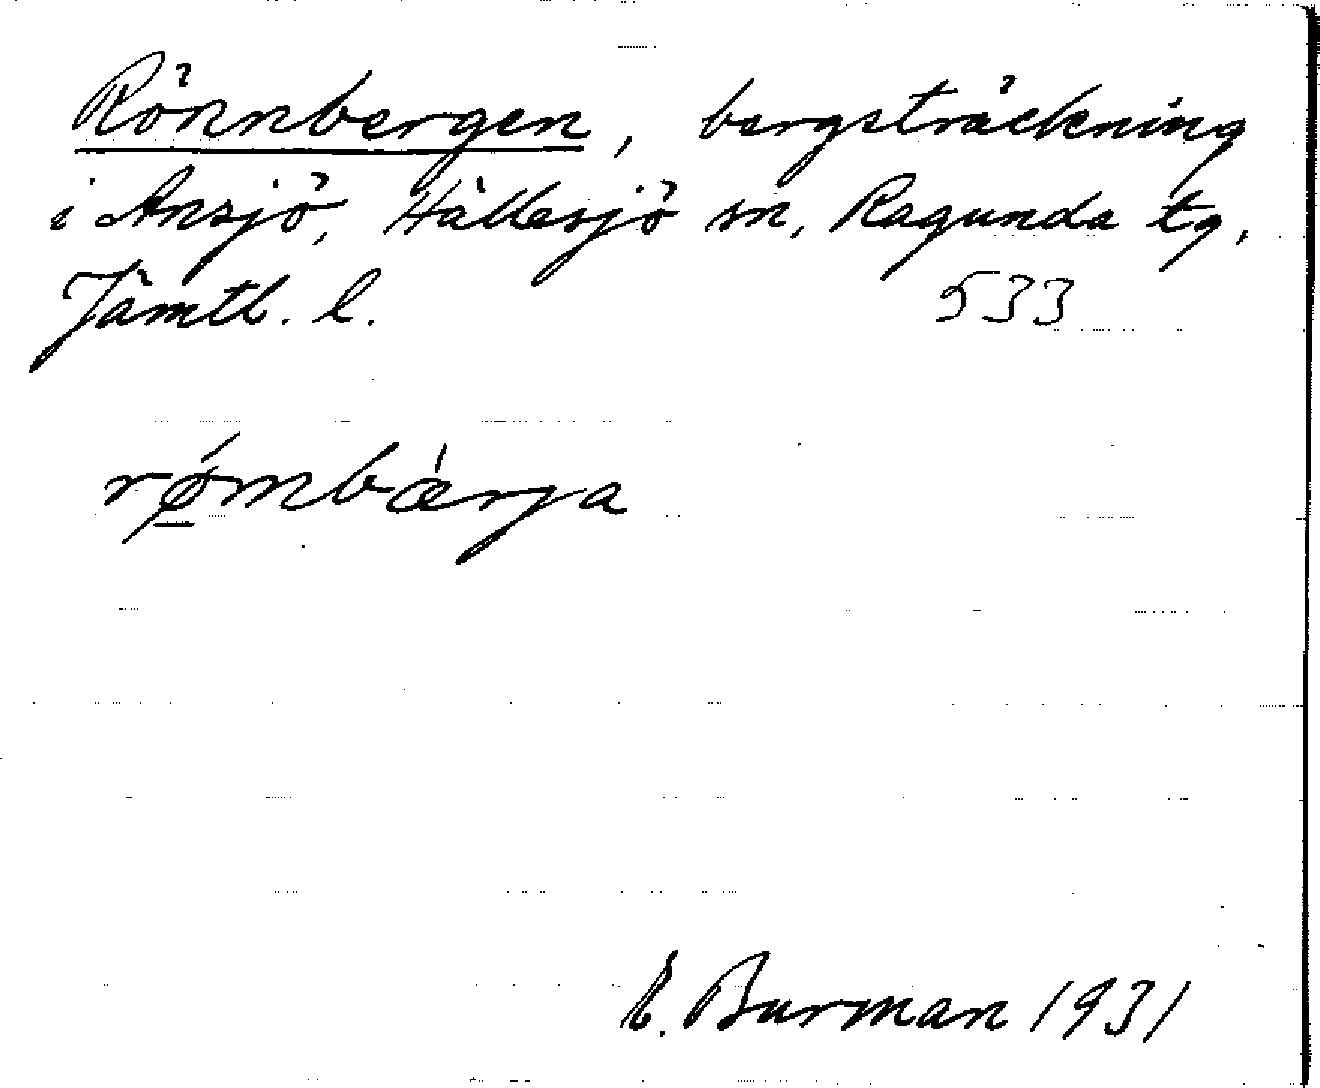 Rönnbergen, bergsträckning
i Ansjö, Hällesjö sn, Ragunda tg,
Jämtl. l. 533
rǿ̲mbǽrja
E. Burman 1931